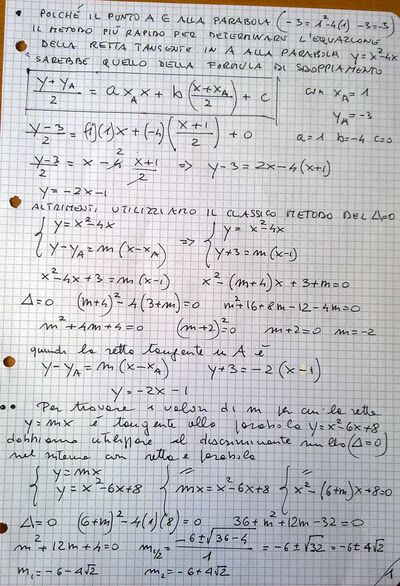 • POICHÉ IL PUNTO A ∈ ALLA PARABOLA (-3=1²-4(1) -3=-3)
IL METODO PIÙ RAPIDO PER DETERMINARE L'EQUAZIONE
DELLA RETTA TANGENTE IN A ALLA PARABOLA y=x²-4x
SAREBBE QUELLO DELLA FORMULA DI SDOPPIAMENTO
(y+y_A)/2 = a x_A x + b((x+x_A)/2) + c con x_A=1
y_A=-3
(y-3)/2 = (1)(1)x+(-4)((x+1)/2)+0 a=1 b=-4 c=0
(y-3)/2 = x - 4 (x+1)/2 ⇒ y-3=2x-4(x+1)
y=-2x-1
ALTRIMENTI UTILIZZIAMO IL CLASSICO METODO DEL Δ=0
{ y=x²-4x { y=x²-4x
y-y_A=m(x-x_A) ⇒ y+3=m(x-1)
x²-4x+3=m(x-1) x²-(m+4)x+3+m=0
Δ=0 (m+4)²-4(3+m)=0 m²+16+8m-12-4m=0
m²+4m+4=0 (m+2)²=0 m+2=0 m=-2
quindi la retta tangente in A è
y-y_A=m(x-x_A) y+3=-2(x-1)
y=-2x-1
•• Per trovare i valori di m per cui la retta
y=mx è tangente alla parabola y=x²-6x+8
dobbiamo utilizzare il discriminante nullo (Δ=0)
nel sistema con retta e parabola
{ y=mx { // { //
y=x²-6x+8 mx=x²-6x+8 x²-(6+m)x+8=0
Δ=0 (6+m)²-4(1)(8)=0 36+m²+12m-32=0
m²+12m+4=0 m_1/2 = (-6±√(36-4))/1 = -6±√32 = -6±4√2
m₁=-6-4√2 m₂=-6+4√2
1